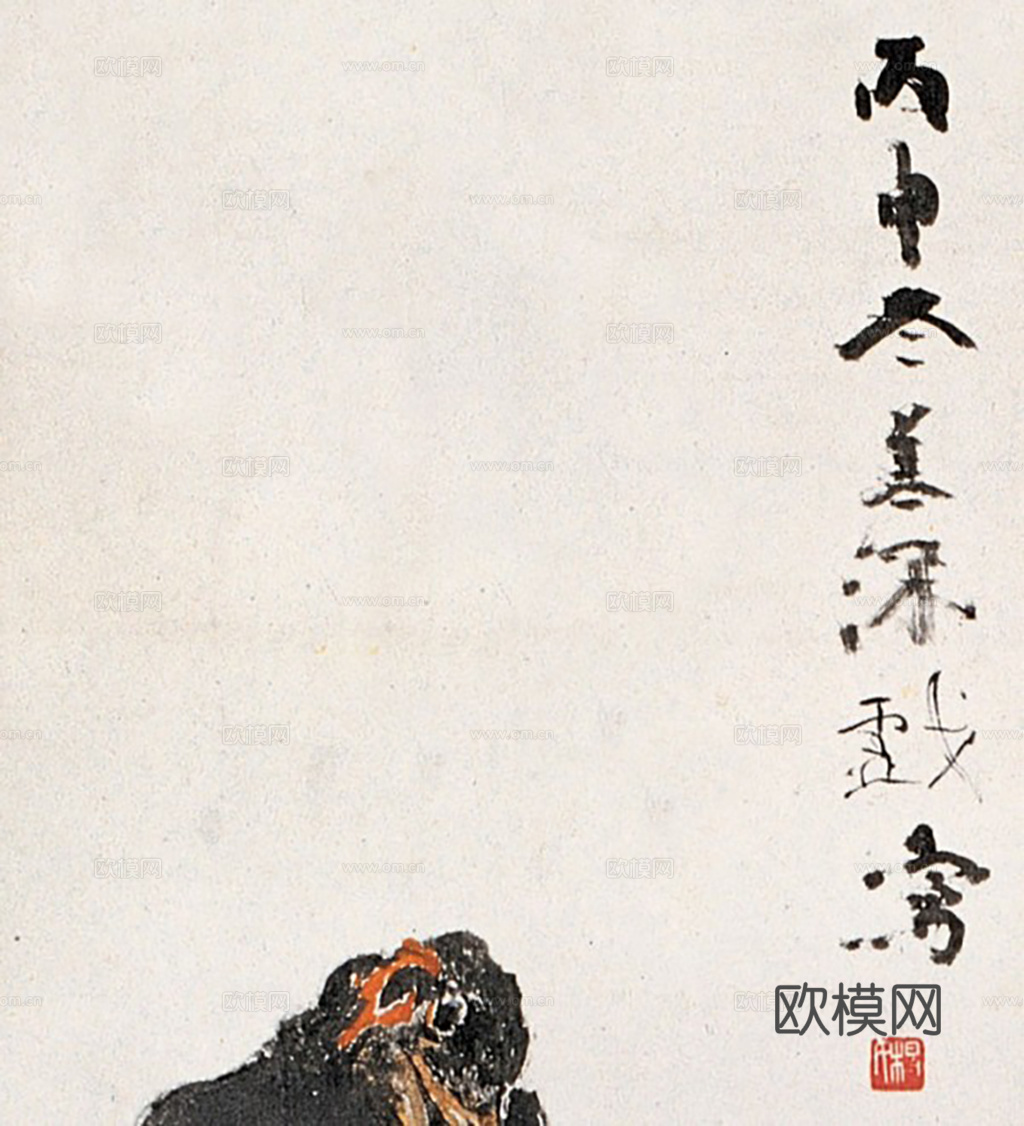 丙申冬善深戲寫
欧模网